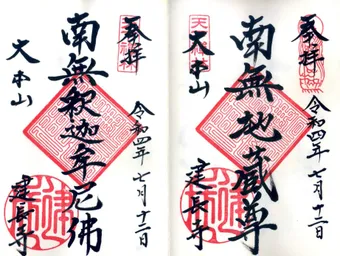 奉拝
令和四年七月十二日
南無地蔵尊
大本山
建長寺
奉拝
令和四年七月十二日
南無釈迦牟尼佛
大本山
建長寺